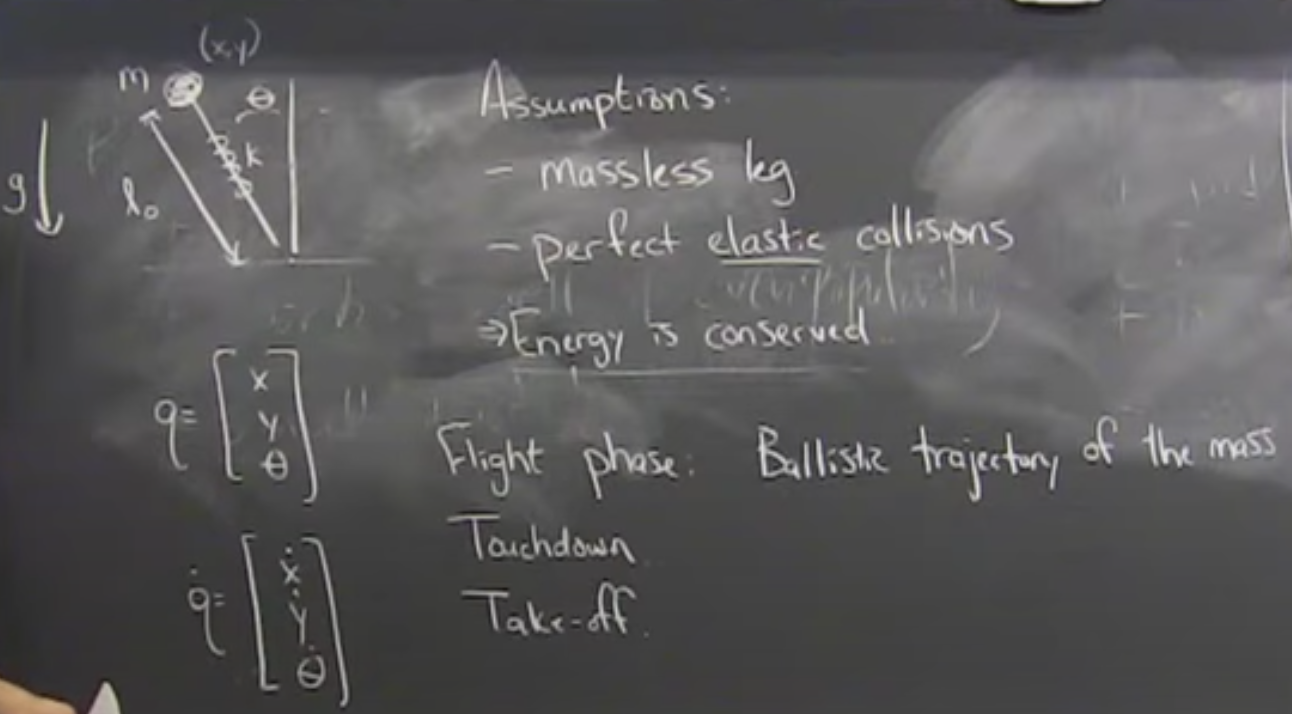 (x,y)
m
θ
k
g
l₀
Assumptions:
- massless leg
- perfect elastic collisions
⇒ Energy is conserved
q = [x y θ]
Flight phase: Ballistic trajectory of the mass
Touchdown.
Take-off.
q̇ = [ẋ ẏ θ̇]